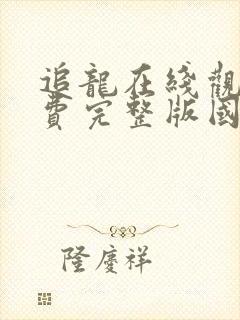 追龍在綫觀
費完整版國
隆慶祥